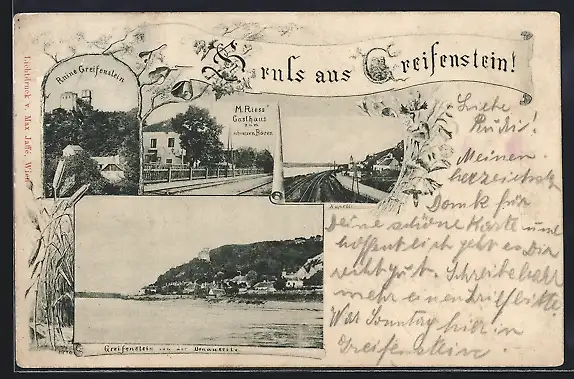 Gruss aus Greifenstein!
Ruine Greifenstein
M. Riess'
Gasthaus
zum
schwarzen Bären
Kapelle
Greifenstein von der Donauseite
Lichtdruck v. Max Jaffé, Wien
Liebe
Meinen
herzlichsten
Dank für
Deine schöne Karte und
hoffentlich geht es Dir
recht gut. Schreibe
mehr einen
War Sonntag hier in
Greifenstein.